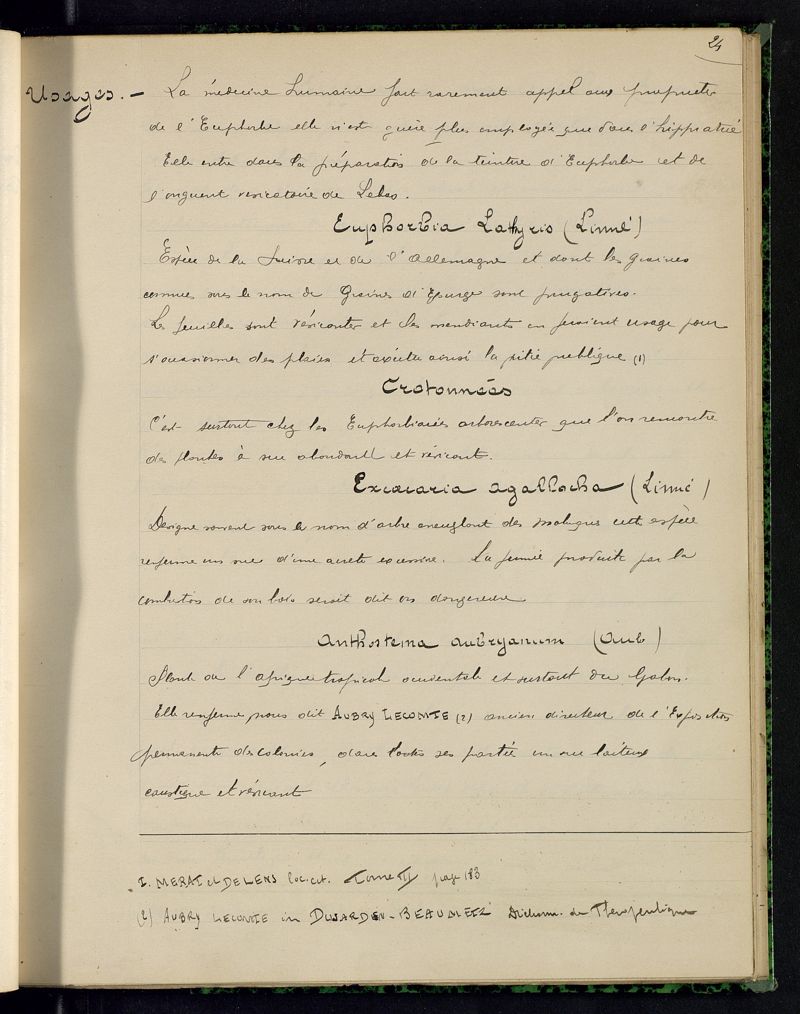 24
Usages. — La médecine humaine fait rarement appel aux propriétés
de l'Euphorbe elle n'est guère plus employée que dans l'hippiatrie
Elle entre dans la préparation de la teinture d'Euphorbe et de
l'onguent vésicatoire de Lebas.
Euphorbia Lathyris (Linné)
Espèce de la Suisse et de l'Allemagne et dont les graines
connues sous le nom de Graines d'Epurge sont purgatives.
Les feuilles sont vésicantes et les mendiants en faisaient usage pour
s'occasionner des plaies et exciter ainsi la pitié publique (1)
Crotonnées
C'est surtout chez les Euphorbiacées arborescentes que l'on rencontre
des plantes à suc abondant et vésicant.
Excæcaria agallocha (Linné)
Designé souvent sous le nom d'arbre aveuglant des Moluques cette espèce
renferme un suc d'une acreté excessive. La fumée produite par la
combustion de son bois serait dit on dangereuse
Anthostema aubryanum (Aub)
Plante de l'afrique tropical occidentale et surtout du Gabon.
Elle renferme nous dit AUBRY LECOMTE (2) ancien directeur de l'Exposition
permanente des colonies, dans toutes ses parties un suc laiteux
caustique et vésicant
1. MERAT et DELENS loc. cit. Tome III page 183
(2) AUBRY LECOMTE in DUJARDIN-BEAUMETZ Dictionn. de Thérapeutique